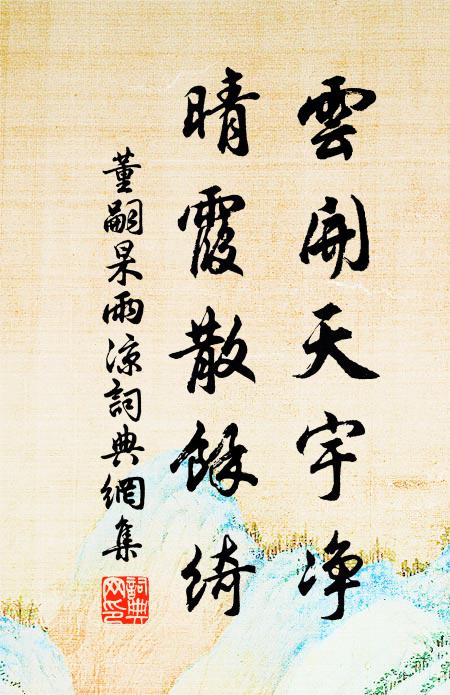 雲開天宇淨
晴霞散餘綺
董嗣杲雨涼詞典網集
詞典
网印